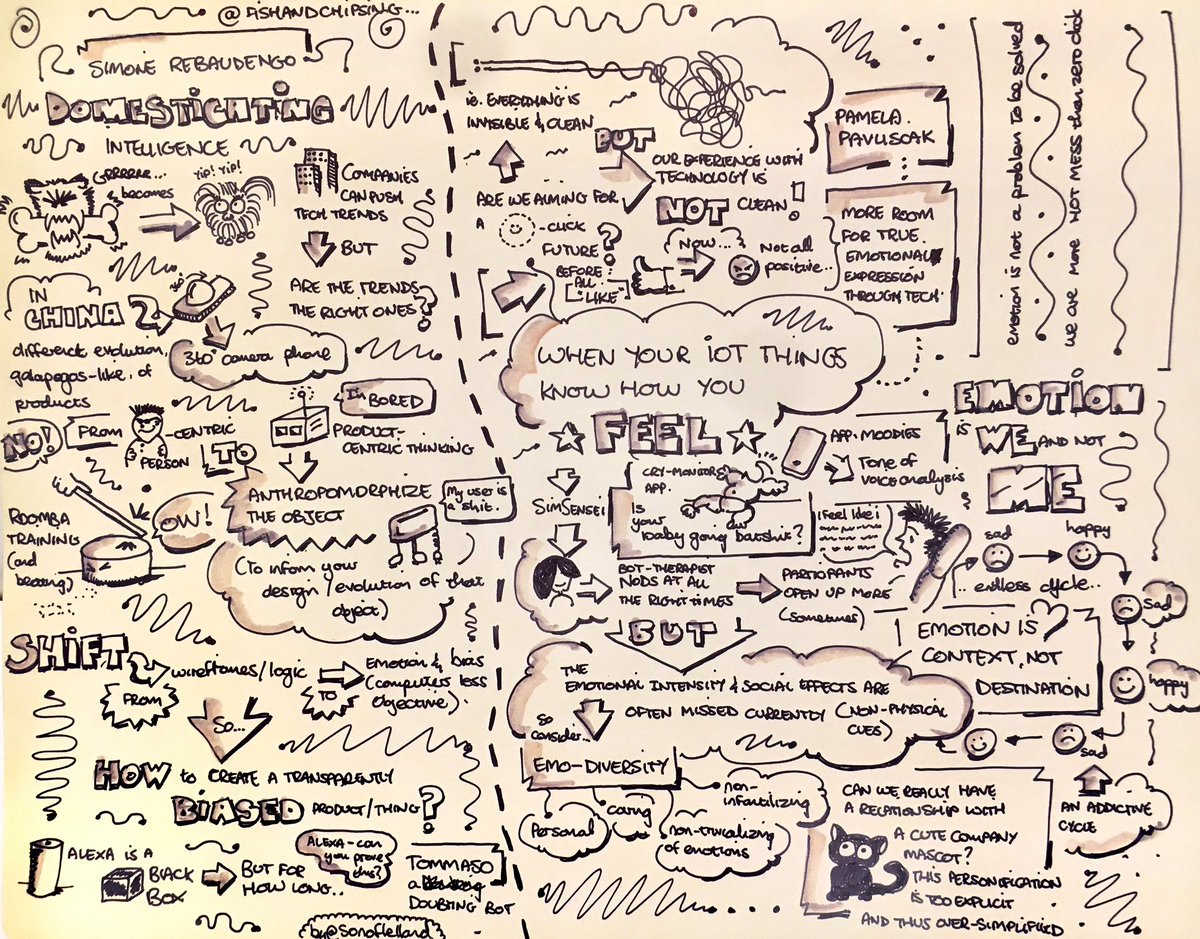 @FISHANDCHIPSING...
SIMONE REBAUDENGO
DOMESTICATING
INTELLIGENCE
GRRRRRR...
becomes
YIP! YIP!
COMPANIES
CAN PUSH
TECH TRENDS
BUT
ARE THE TRENDS
THE RIGHT ONES?
IN
CHINA
360°
different evolution,
galapagos-like, of
products
360° camera phone
NO!
FROM
PERSON
-CENTRIC
TO
I'm
BORED
PRODUCT-
CENTRIC THINKING
ROOMBA
TRAINING
(and
beating)
OW!
ANTHROPOMORPHIZE
THE OBJECT
My user is
a shit.
(To inform your
design/evolution of that
object)
SHIFT
FROM
wireframes/logic
TO
Emotion & bias
(computers less
objective).
So...
HOW to CREATE A TRANSPARENTLY
BIASED PRODUCT/THING?
ALEXA IS A
BLACK
BOX
BUT FOR
HOW LONG...
ALEXA - can
you prove
this?
TOMMASO
a
DOUBTING BOT
by @sonoflelland
ie. EVERYTHING IS
INVISIBLE & CLEAN
BUT
OUR EXPERIENCE WITH
TECHNOLOGY IS
NOT CLEAN!
ARE WE AIMING FOR
A -CLICK
FUTURE?
BEFORE
ALL
"LIKE"
NOW...
Not all
positive...
PAMELA
PAVLISCAK
MORE ROOM
FOR TRUE
EMOTIONAL
EXPRESSION
THROUGH TECH.
emotion is not a problem to be solved
we are more HOT MESS than zero click
WHEN YOUR IOT THINGS
KNOW HOW YOU
FEEL
SIMSENSEI
CRY-MONITOR
APP.
Is
your
baby going batshit?
APP. MOODIES
Tone of
voice analysis
BOT-THERAPIST
NODS AT ALL
THE RIGHT TIMES
I feel like i
PARTICIPANTS
OPEN UP MORE
(sometimes)
BUT
THE
EMOTIONAL INTENSITY & SOCIAL EFFECTS ARE
OFTEN MISSED CURRENTLY (NON-PHYSICAL
CUES)
So
consider...
EMO-DIVERSITY
Personal
caring
non-
infantilizing
non-trivializing
of emotions
EMOTION
is WE AND NOT
ME
sad
happy
endless cycle...
sad
happy
sad
EMOTION IS
CONTEXT, NOT
DESTINATION
AN ADDICTIVE
CYCLE
CAN WE REALLY HAVE
A RELATIONSHIP WITH
A CUTE COMPANY
MASCOT?
THIS PERSONIFICATION
IS TOO EXPLICIT
AND THUS OVER-SIMPLIFIED